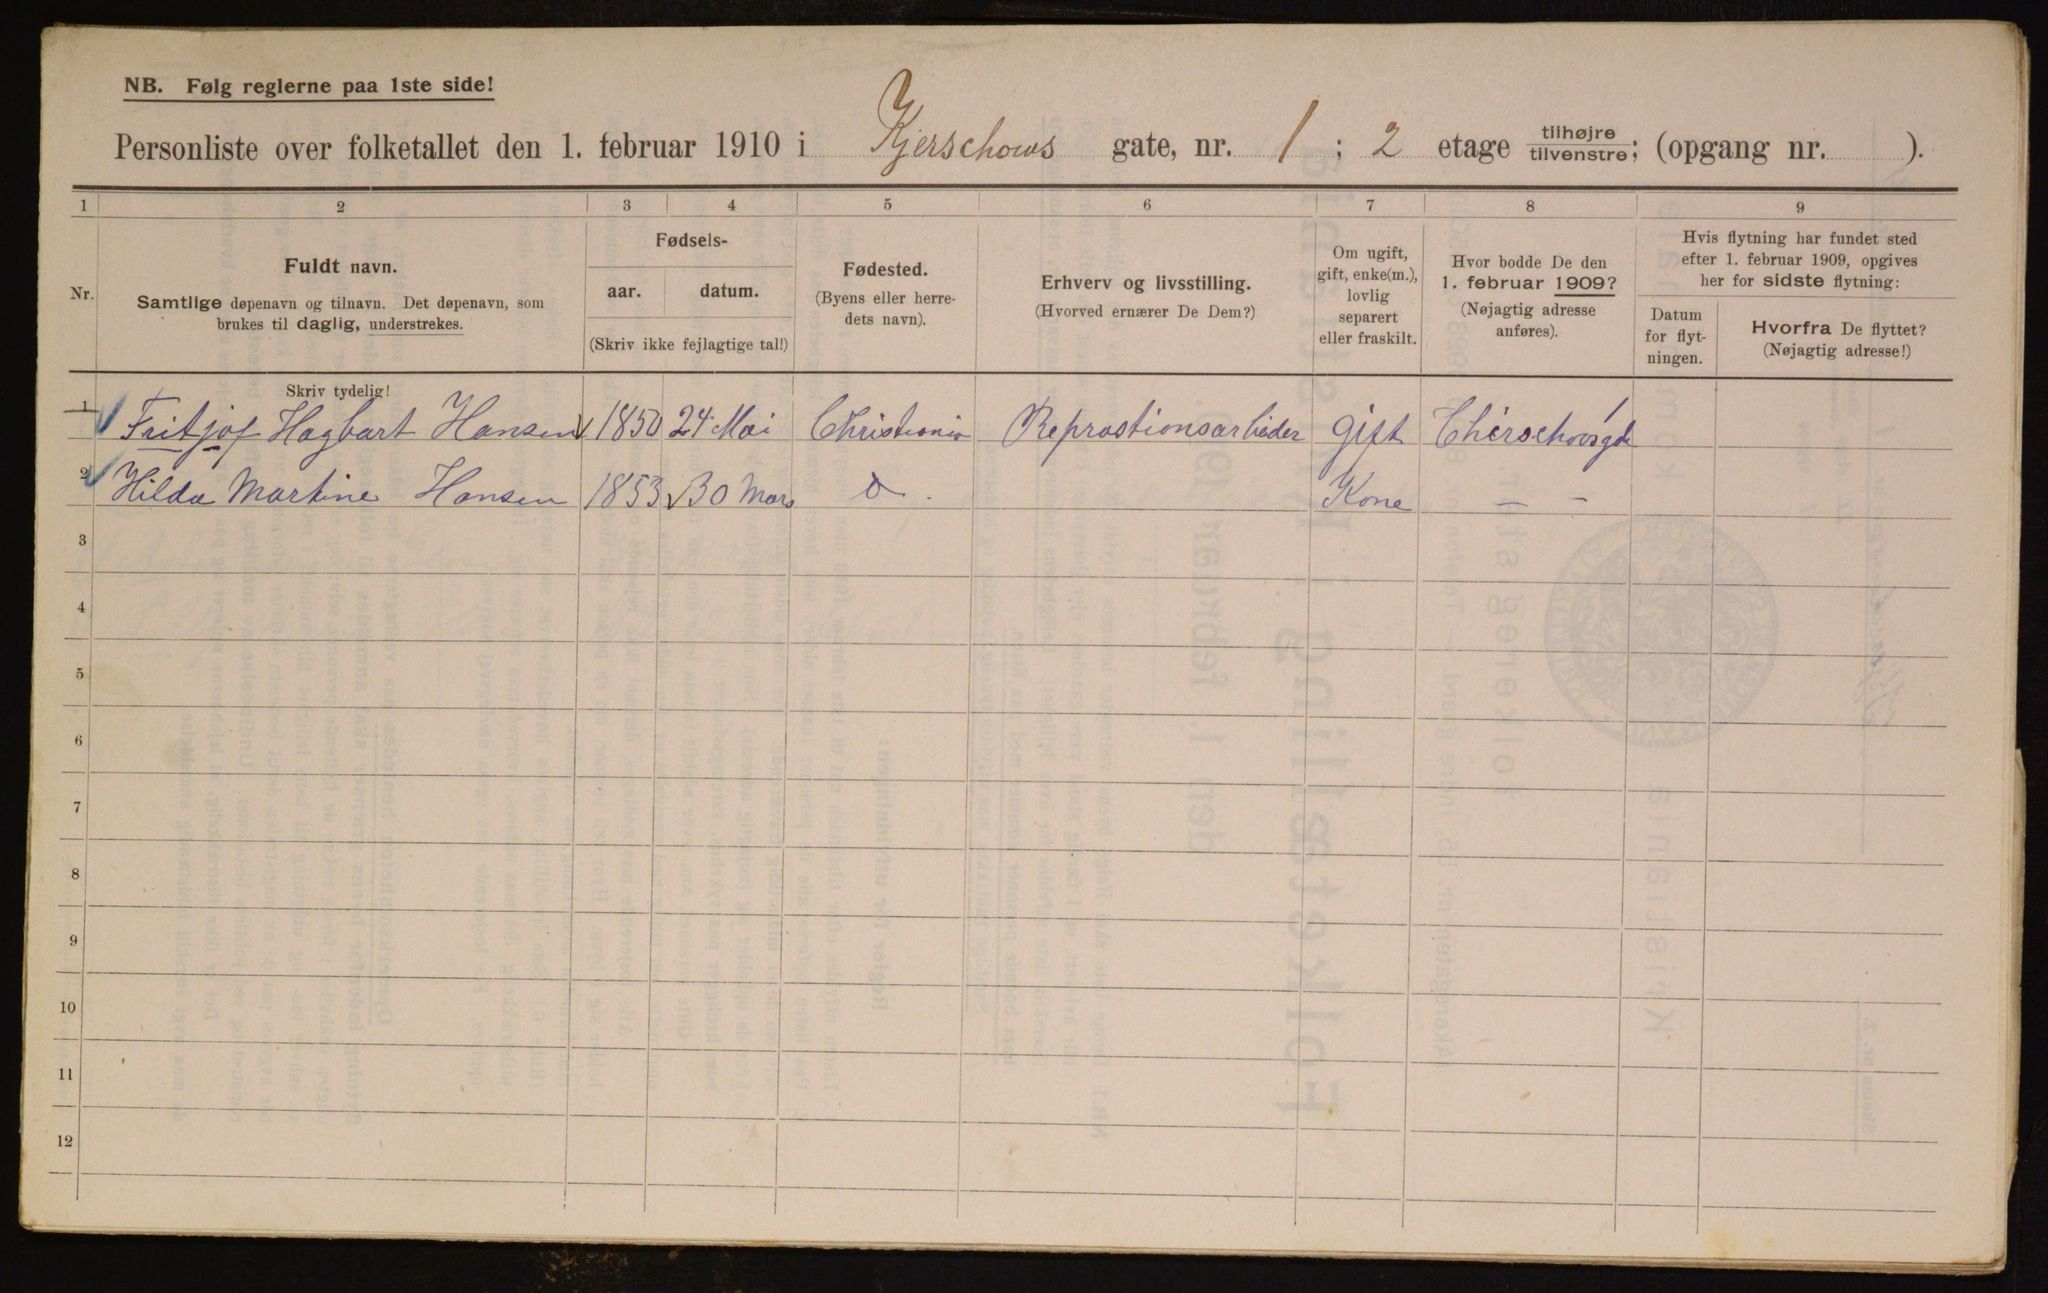 NB. Følg reglerne paa 1ste side!
Personliste over folketallet den 1. februar 1910 i Kjerschows gate, nr. 1 ; 2 etage tilhøjre tilvenstre; (opgang nr. ).
1 2 3 4 5 6 7 8 9
Nr.
Fuldt navn.
Samtlige døpenavn og tilnavn. Det døpenavn, som
brukes til daglig, understrekes.
Fødsels-
aar. datum.
(Skriv ikke fejlagtige tal!)
Fødested.
(Byens eller herre-
dets navn).
Erhverv og livsstilling.
(Hvorved ernærer De Dem?)
Om ugift,
gift, enke(m.),
lovlig
separert
eller fraskilt.
Hvor bodde De den
1. februar 1909?
(Nøjagtig adresse
anføres).
Hvis flytning har fundet sted
efter 1. februar 1909, opgives
her for sidste flytning:
Datum
for flyt-
ningen.
Hvorfra De flyttet?
(Nøjagtig adresse!)
Skriv tydelig!
1 Fritjof Hagbart Hansen 1850 24 Mai Christiania Reprastionsarbeider gift Chierschovsgde 1
2 Hilda Martine Hansen 1853 30 Mars do. Kone — —
3
4
5
6
7
8
9
10
11
12